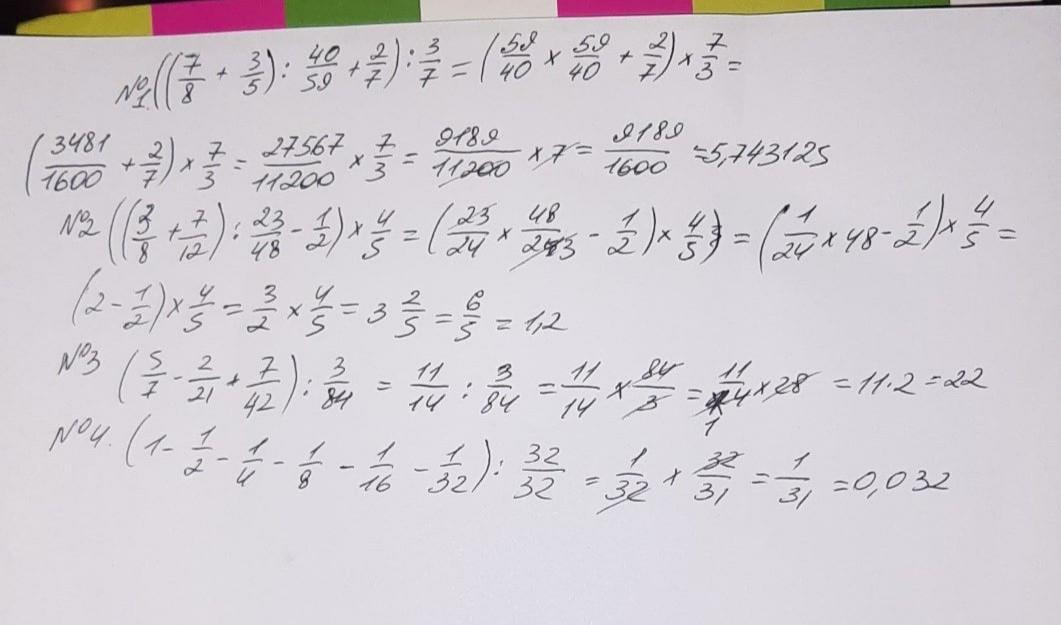 №1. ((7/8 + 3/5) : 40/59 + 2/7) : 3/7 = (59/40 × 59/40 + 2/7) × 7/3 =
(3481/1600 + 2/7) × 7/3 = 27567/11200 × 7/3 = 9189/11200 × 7 = 9189/1600 = 5,743125
№2 ((3/8 + 7/12) : 23/48 - 1/2) × 4/5 = (23/24 × 48/23 - 1/2) × 4/5 = (1/24 × 48 - 1/2) × 4/5 =
(2 - 1/2) × 4/5 = 3/2 × 4/5 = 3 2/5 = 6/5 = 1,2
№3 (5/7 - 2/21 + 7/42) : 3/84 = 11/14 : 3/84 = 11/14 × 84/3 = 11/14 × 28 = 11·2 = 22
№4. (1 - 1/2 - 1/4 - 1/8 - 1/16 - 1/32) : 32/32 = 1/32 × 32/31 = 1/31 = 0,032